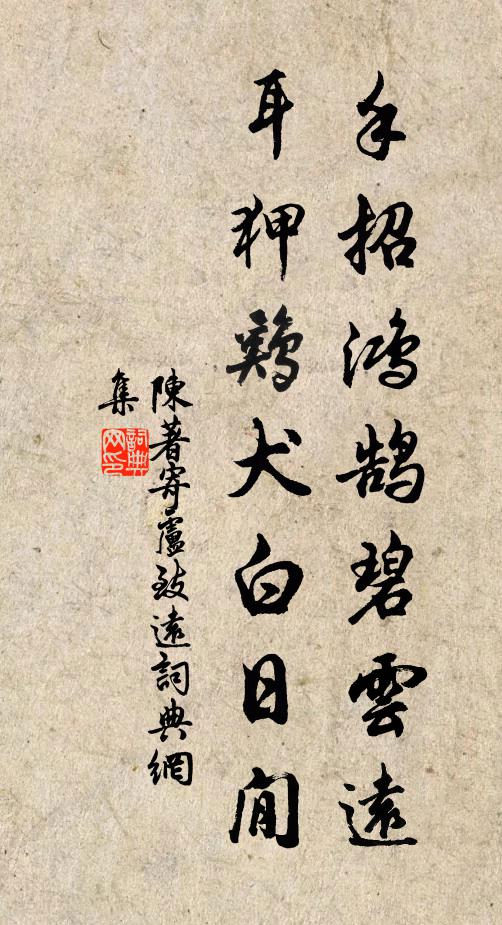 手招鴻鵠碧雲遠
耳狎鷄犬白日閒
陳著寄盧致遠詞典網
集
詞典
网印